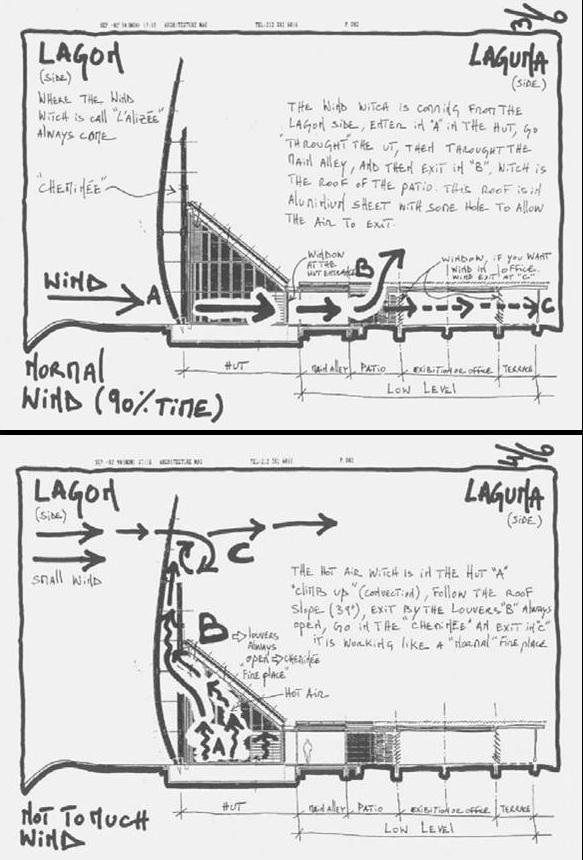 ARCHITECTURE MAG
3/9
LAGON
(SIDE)
LAGUNA
(SIDE)
WHERE THE WIND
WITCH IS CALL "L'ALIZÉE"
ALWAYS COME
THE WIND WITCH IS COMING FROM THE
LAGON SIDE, ENTER IN "A" IN THE HUT, GO
"THROUGHT" THE UT, THEN THROUGHT THE
MAIN ALLEY, AND THEN EXIT IN "B", WITCH IS
THE ROOF OF THE PATIO. THIS ROOF IS IN
ALUMINIUM SHEET WITH SOME HOLE TO ALLOW
THE AIR TO EXIT.
"CHEMINÉE"
WINDOW
AT THE
HUT ENTRANCE
B
WINDOW, IF YOU WANT
WIND IN OFFICE.
WIND EXIT AT "C"
WIND
A
C
HUT
MAIN ALLEY
PATIO
EXIBITION OR OFFICE
TERRACE
LOW LEVEL
NORMAL
WIND (90% TIME)
ARCHITECTURE MAG
LAGON
(SIDE)
LAGUNA
(SIDE)
SMALL WIND
C
THE HOT AIR WITCH IS IN THE HUT "A"
"CLIMB UP" (CONVECTION), FOLLOW THE ROOF
SLOPE (39°), EXIT BY THE LOUVERS "B" ALWAYS
OPEN, GO IN THE "CHEMINÉE" AN EXIT IN "C"
IT IS WORKING LIKE A "NORMAL" FIRE PLACE
B
LOUVERS
ALWAYS
OPEN
CHEMINÉE
"FIRE PLACE"
HOT AIR
A
HUT
MAIN ALLEY
PATIO
EXIBITION OR OFFICE
TERRACE
LOW LEVEL
NOT TO MUCH
WIND